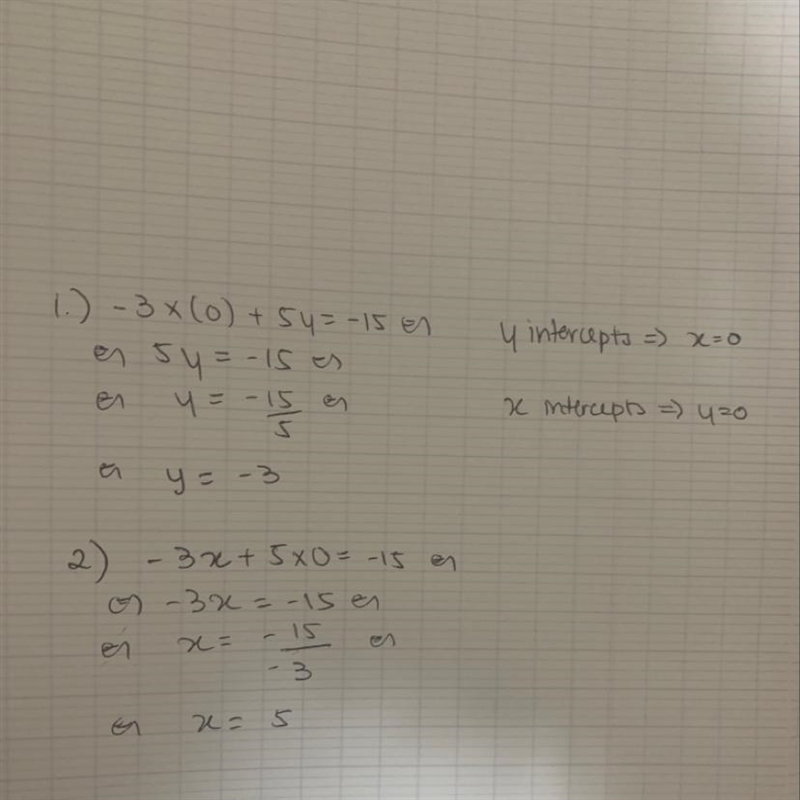 1.) -3×(0) + 5y = -15 ⇔
⇔ 5y = -15 ⇔
⇔ y = -15/5 ⇔
⇔ y = -3
y intercepts => x=0
x intercepts => y=0
2) -3x + 5×0 = -15 ⇔
⇔ -3x = -15 ⇔
⇔ x = -15/-3 ⇔
⇔ x = 5